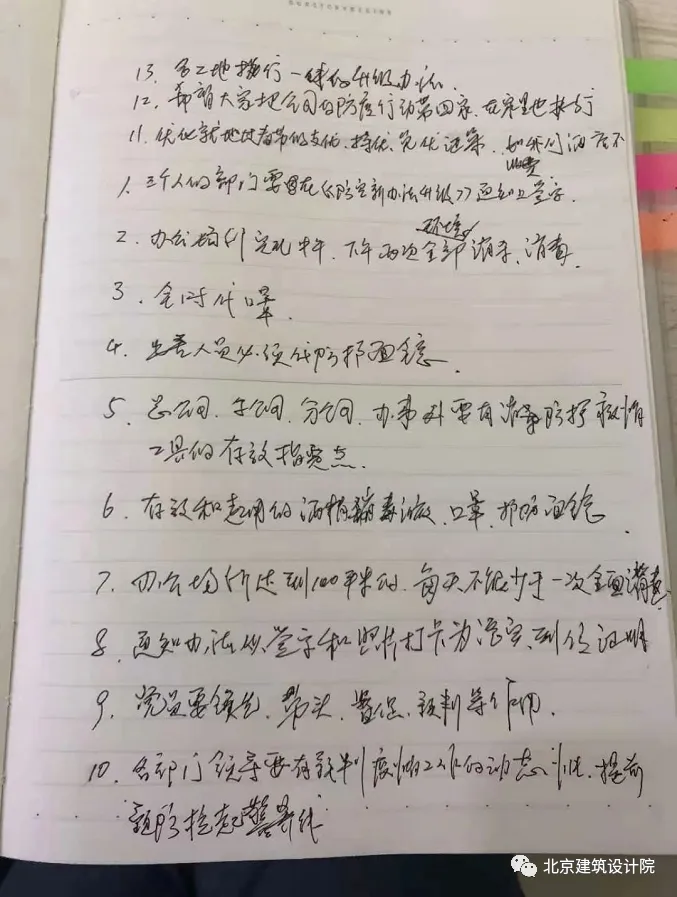 13、各工地推行一样的升级办法.
12、希望大家把公司的防疫行动带回家,在家里也执行
11、优化就地过春节的支付、择优、完优 如
1、三个人的部门要留在《防疫新办法升级》通知上签字.
环境
2、办公场所实施中午、下午两次全部消杀、消毒.
3、全时代口罩.
4、出差人员必须代防护面
5、总公司、子公司、分公司、办事处要有消毒防护
工具的存放指定点.
6、存放和起用的酒精消毒液、口罩、护防面
7、办公场所达到100平米的,每天不能少于一次全面消毒.
8、通知办法以签字和照片打卡为落实、到位证明
9、党员要领先、带头、预判等作用.
10、各部门领导要有预判疫情工作的动态 提前
预防 警界线
北京建筑设计院